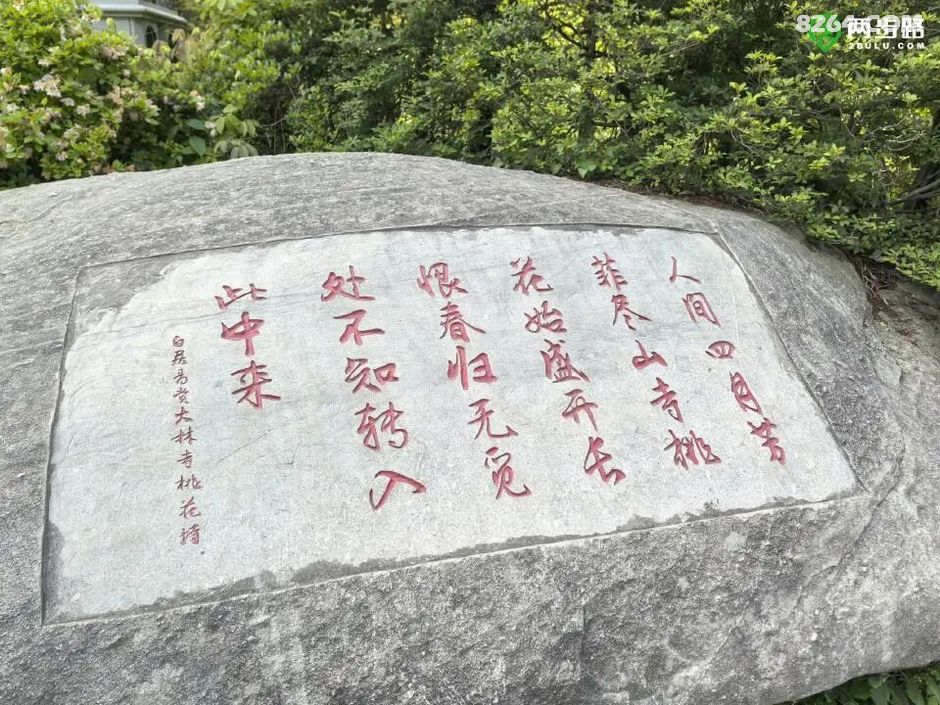 人间四月芳
菲尽山寺桃
花始盛开长
恨春归无觅
处不知转入
此中来
白居易赏大林寺桃花诗
8264.COM
两步路
2BULU.COM